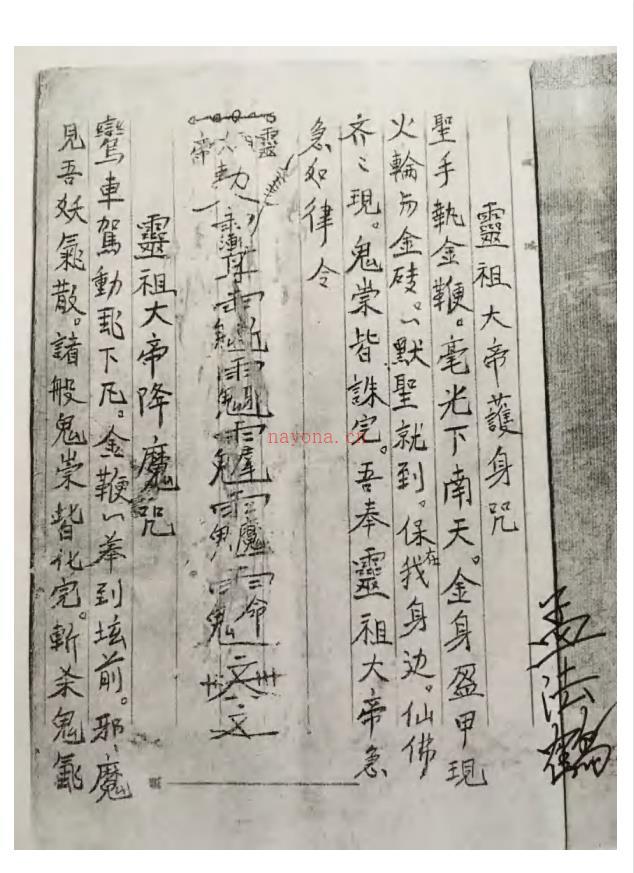 靈祖大帝護身咒
聖手執金鞭。毫光下南天。金身盈甲現
火輪与金磚。一默聖就到。保在我身边。仙佛
齐〻現。鬼祟皆誅完。吾奉靈祖大帝急
急如律令
靈祖大帝降魔咒
鸞車駕動乩下凡。金鞭一举到坛前。邪〻魔
見吾妖氣散。諸般鬼祟皆化完。斬杀鬼氣
nayona.cn